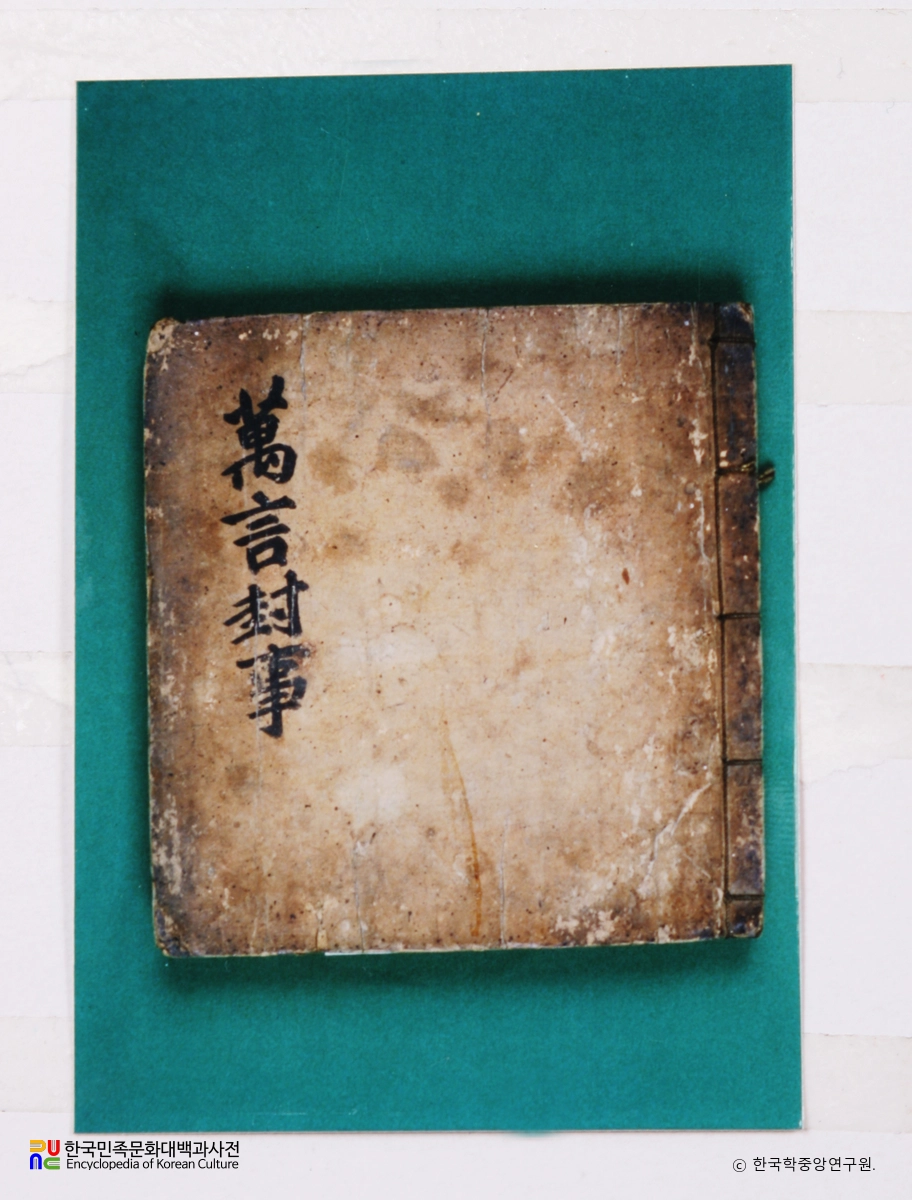 萬言封事
한국민족문화대백과사전
Encyclopedia of Korean Culture
ⓒ 한국학중앙연구원.